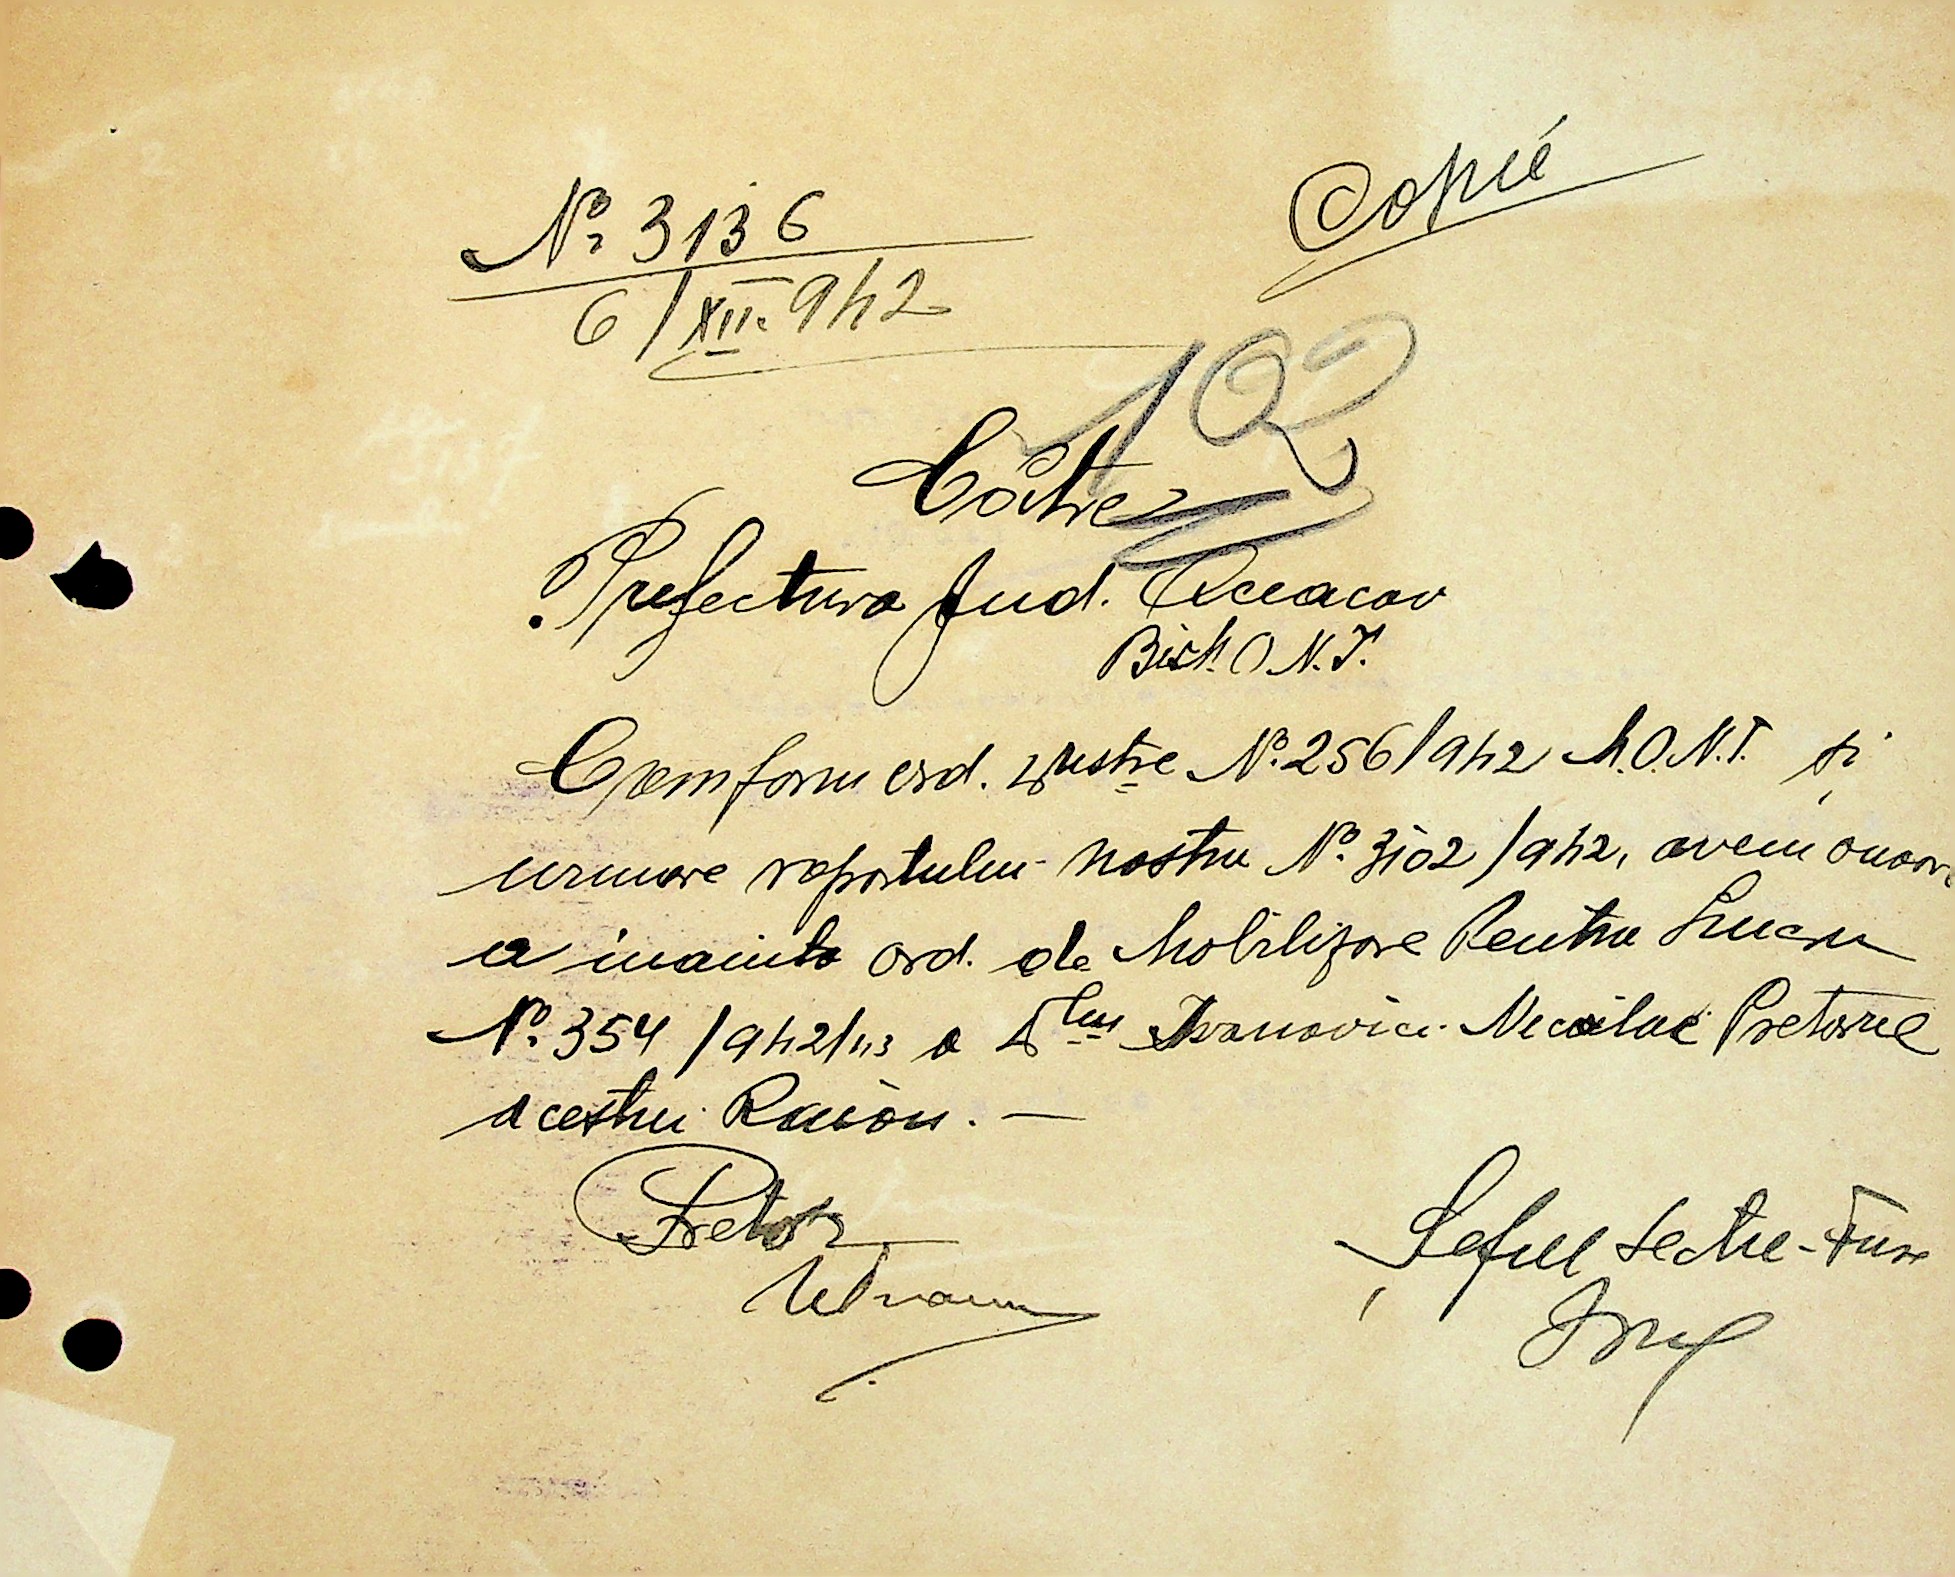 Copie
No. 3136
6/XII. 942
102
Către
Prefectura Jud. Oceacov
Bir. M.O.N.T.
Comform ord. Dvstre No. 256/942 M.O.N.T. și
urmare raportului nostru No. 3102/942, avem onoare
a inainta ord. de Mobilizare Pentru Lucru
No. 354/942/43 a Dlui Ivanovici Nicolae Pretorul
acestui Raion. —
Pretor
Șeful Secției